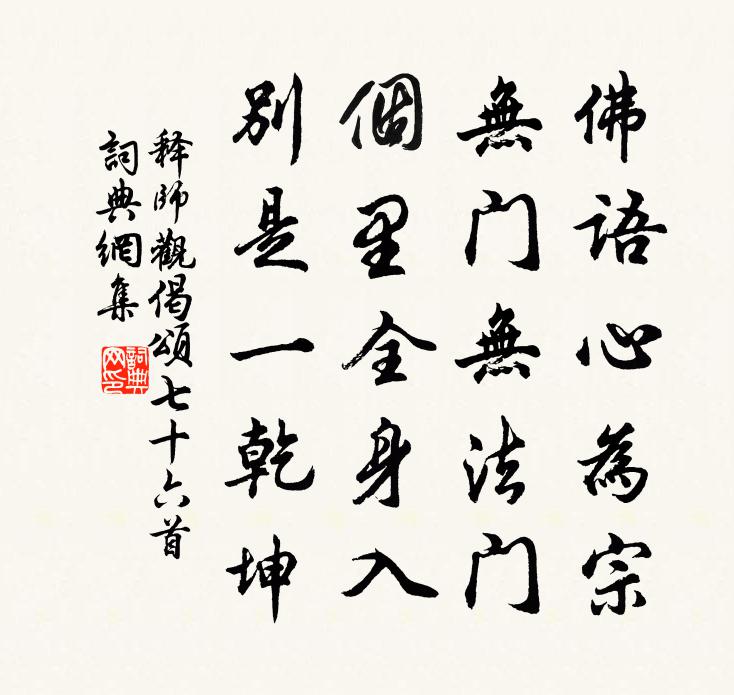 佛語心為宗
無門無法門
個里全身入
別是一乾坤
释師觀偈頌七十六首
詞典網集
詞典网印